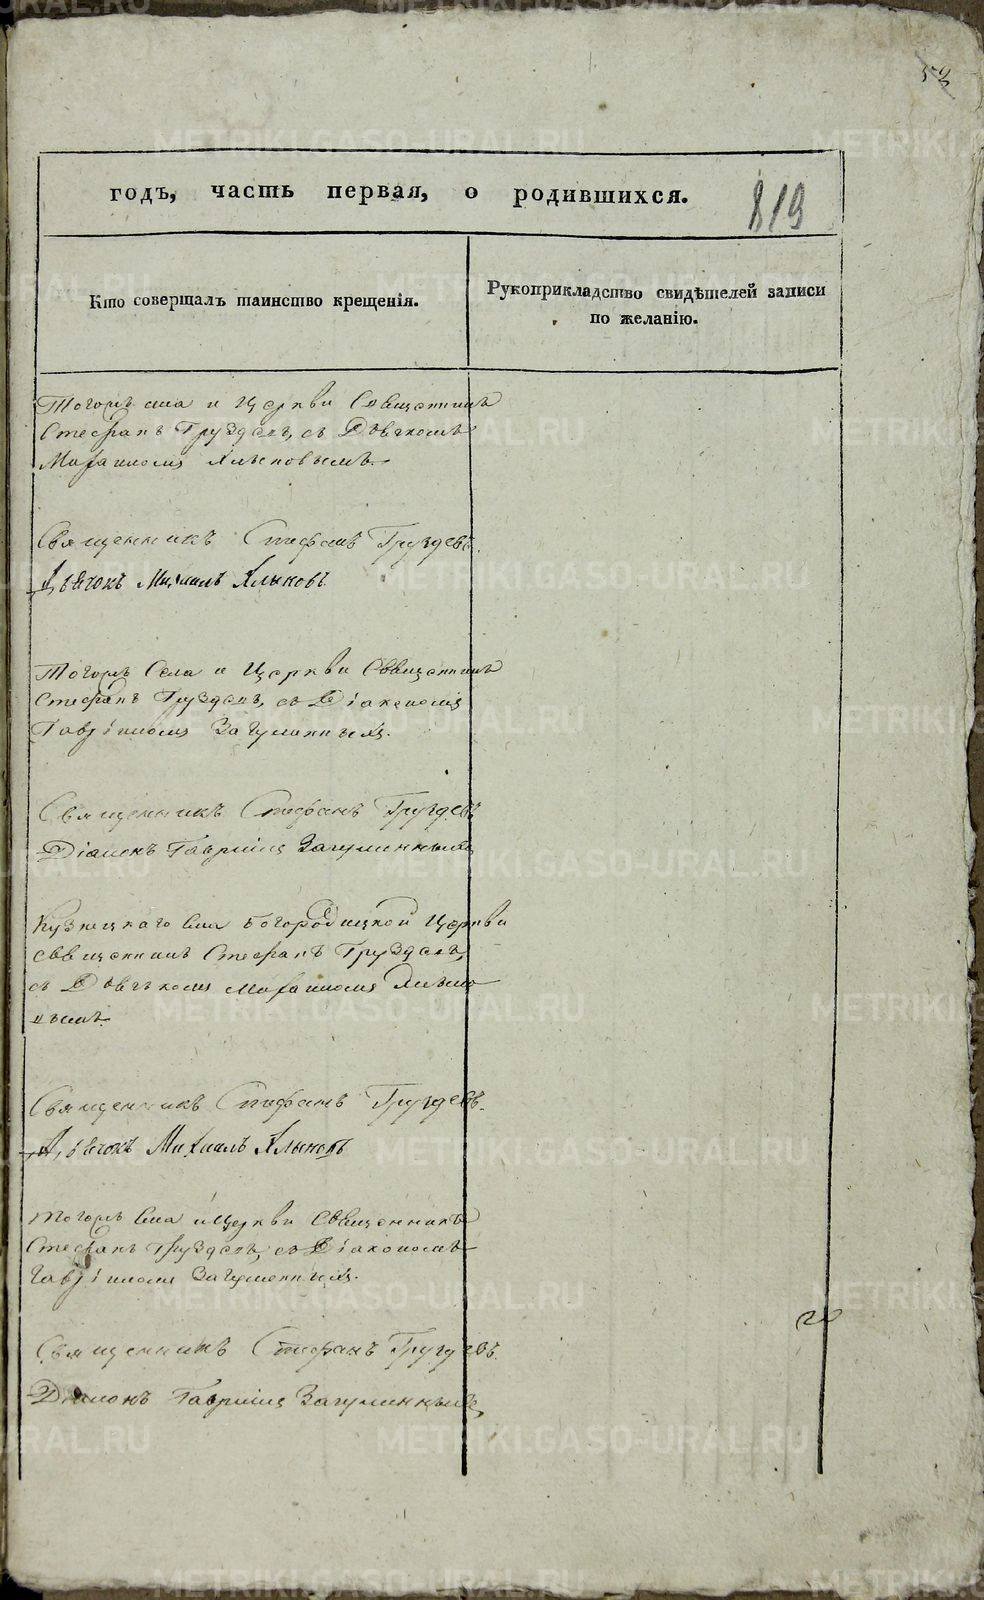 53
годъ, часть первая, о родившихся.
819
Кто совершалъ таинство крещенія.
Рукоприкладство свидѣтелей записи
по желанію.
Тогожъ села и Церкви Священникъ
Стефанъ Груздевъ, съ Дьячкомъ
Михаиломъ Хлыновымъ.
Священникъ Стефанъ Груздевъ.
Дьячокъ Михаилъ Хлыновъ
Тогожъ Села и Церкви Священникъ
Стефанъ Груздевъ, съ Діакономъ
Гавріиломъ Загуменныхъ.
Священникъ Стефанъ Груздевъ
Діаконъ Гавріилъ Загуменныхъ
Кузнецкаго села Богородицкой Церкви
священникъ Стефанъ Груздевъ,
съ Дьячкомъ Михаиломъ Хлыно
вымъ.
Священникъ Стефанъ Груздевъ.
Дьячокъ Михаилъ Хлыновъ
Тогожъ села и Церкви Священникъ
Стефанъ Груздевъ, съ Діакономъ
Гавріиломъ Загуменныхъ.
Священникъ Стефанъ Груздевъ.
Діаконъ Гавріилъ Загуменныхъ
METRIKI.GASO-URAL.RU